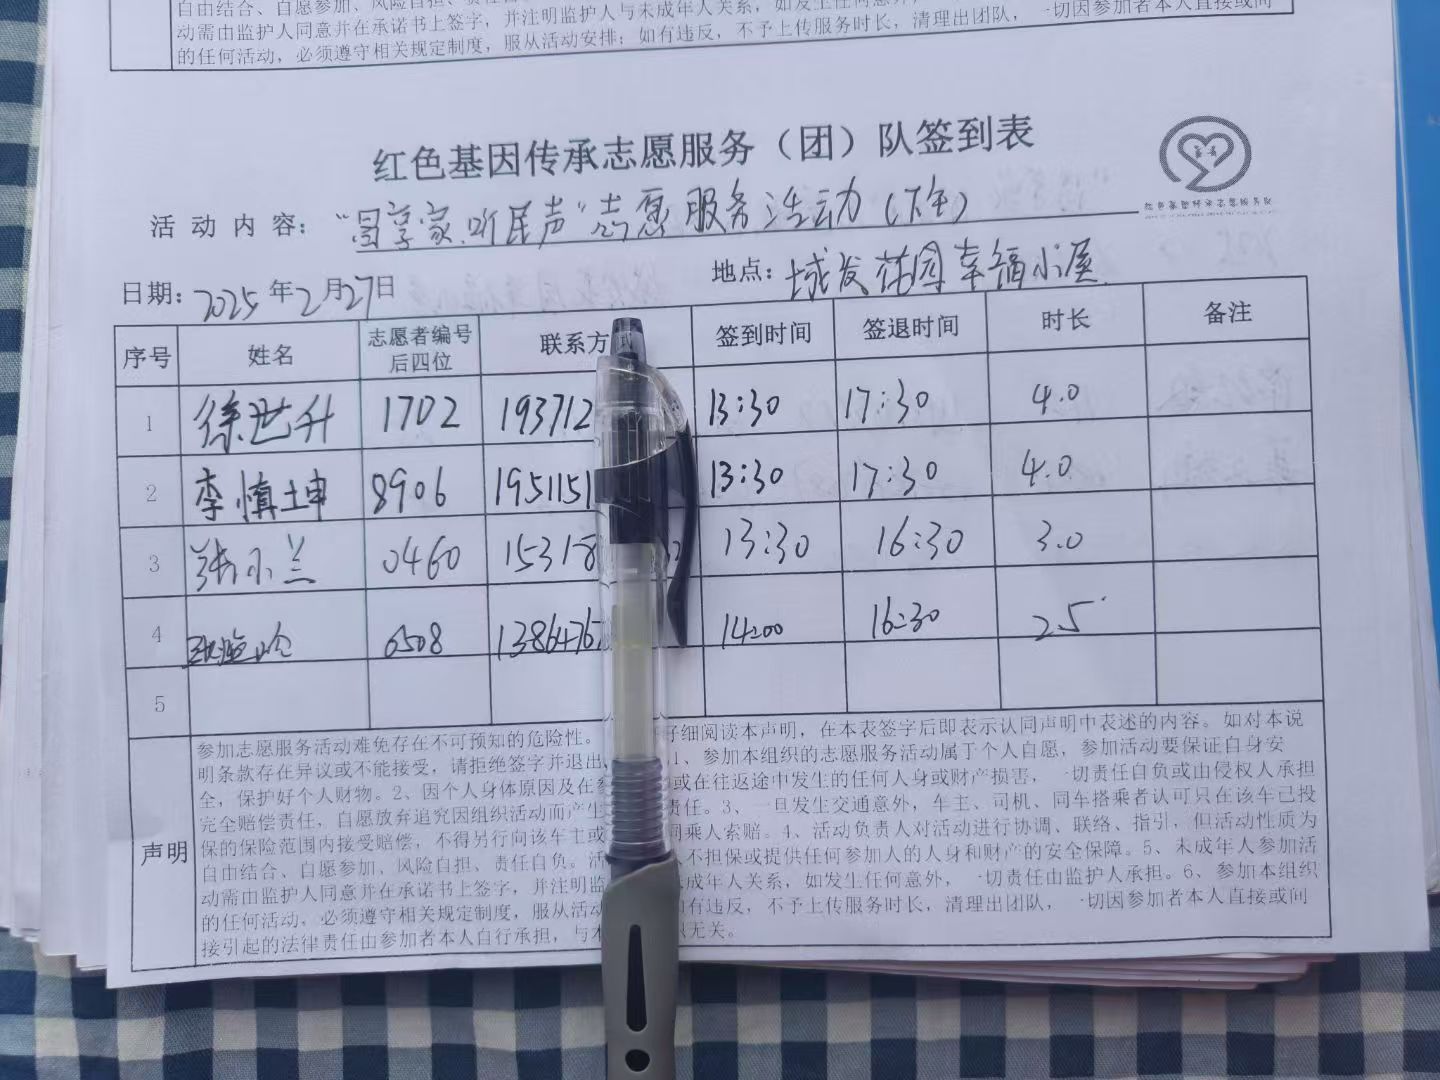 动需由监护人同意并在承诺书上签字，并注明监护人与未成年人关系，如发生任何意外，
的任何活动，必须遵守相关规定制度，服从活动安排；如有违反，不予上传服务时长，清理出团队，一切因参加者本人直接或间
红色基因传承志愿服务（团）队签到表
活动内容： 志愿服务活动（下午）
日期：2025年2月27日 地点：城发花园幸福小屋
序号 姓名 志愿者编号后四位 联系方 签到时间 签退时间 时长 备注
1 徐世升 1702 193712 13:30 17:30 4.0
2 李慎坤 8906 1951151 13:30 17:30 4.0
3 张小兰 0460 15318 13:30 16:30 3.0
4 6508 1386476 14:00 16:30 2.5
5
参加志愿服务活动难免存在不可预知的危险性。 仔细阅读本声明，在本表签字后即表示认同声明中表述的内容。如对本说
明条款存在异议或不能接受，请拒绝签字并退出 1、参加本组织的志愿服务活动属于个人自愿，参加活动要保证自身安
全，保护好个人财物。2、因个人身体原因及在参 或在往返途中发生的任何人身或财产损害，一切责任自负或由侵权人承担
完全赔偿责任，自愿放弃追究因组织活动而产生 责任。3、一旦发生交通意外，车主、司机、同车搭乘者认可只在该车已投
保的保险范围内接受赔偿，不得另行向该车主或 同乘人索赔。4、活动负责人对活动进行协调、联络、指引，但活动性质为
声明
自由结合、自愿参加、风险自担、责任自负。活 不担保或提供任何参加人的人身和财产的安全保障。5、未成年人参加活
动需由监护人同意并在承诺书上签字，并注明监 未成年人关系，如发生任何意外，一切责任由监护人承担。6、参加本组织
的任何活动，必须遵守相关规定制度，服从活动 如有违反，不予上传服务时长，清理出团队，一切因参加者本人直接或间
接引起的法律责任由参加者本人自行承担，与本 无关。